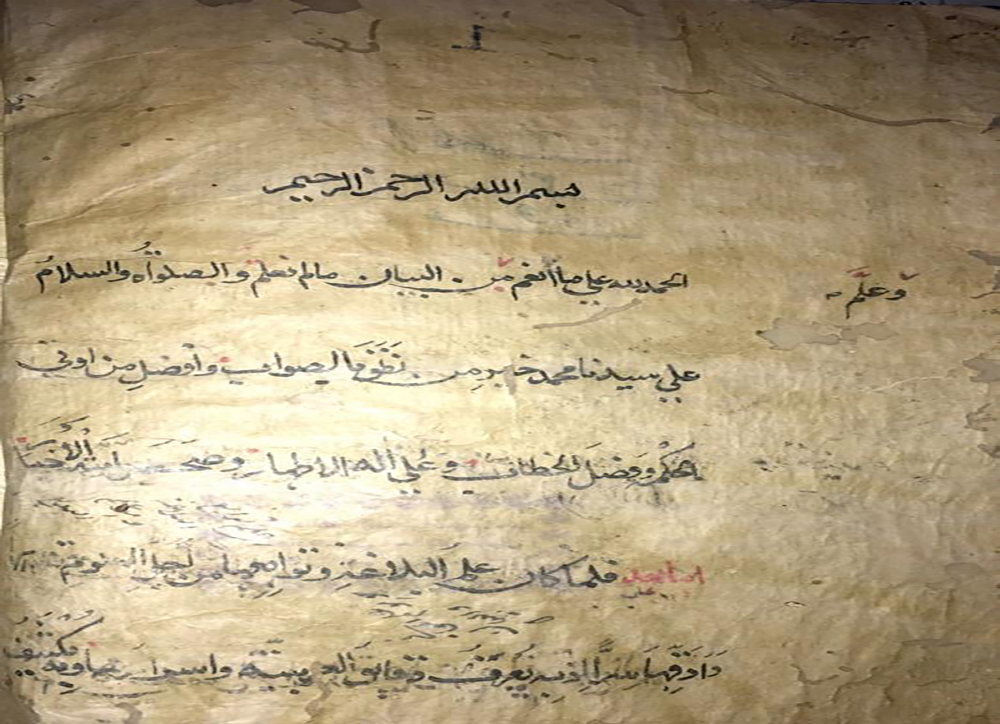 بسم الله الرحمن الرحيم
الحمد لله على ما أنعم من البيان ما لم نعلم والصلوٰة والسلام
وعلَّم
على سيدنا محمد خير من نطق بالصواب وأفضل من اوتي
الحكم وفصل الخطاب وعلى آله الاطهار وصحـ الأخيا
اما بعد فلما كان علم البلاغة وتوابعها من اجل
وادقها سرا اذ به يعرف دقايق العربية واسرارها